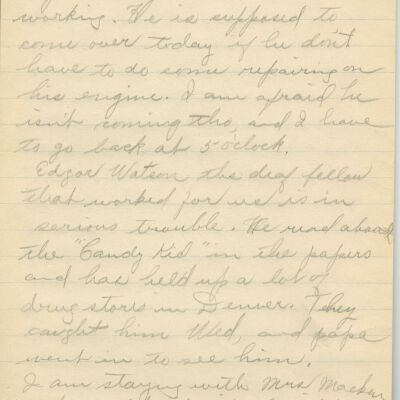 working. He is supposed to
come over today if he don't
have to do some repairing on
his engine. I am afraid he
isn't coming tho, and I have
to go back at 5 o'clock.
Edgar Watson the deaf fellow
that worked for us is in
serious trouble. He read about
the "Candy Kid" in the papers
and has held up a lot of
drug stores in Denver. They
caught him Wed, and papa
went in to see him.
I am staying with Mrs.